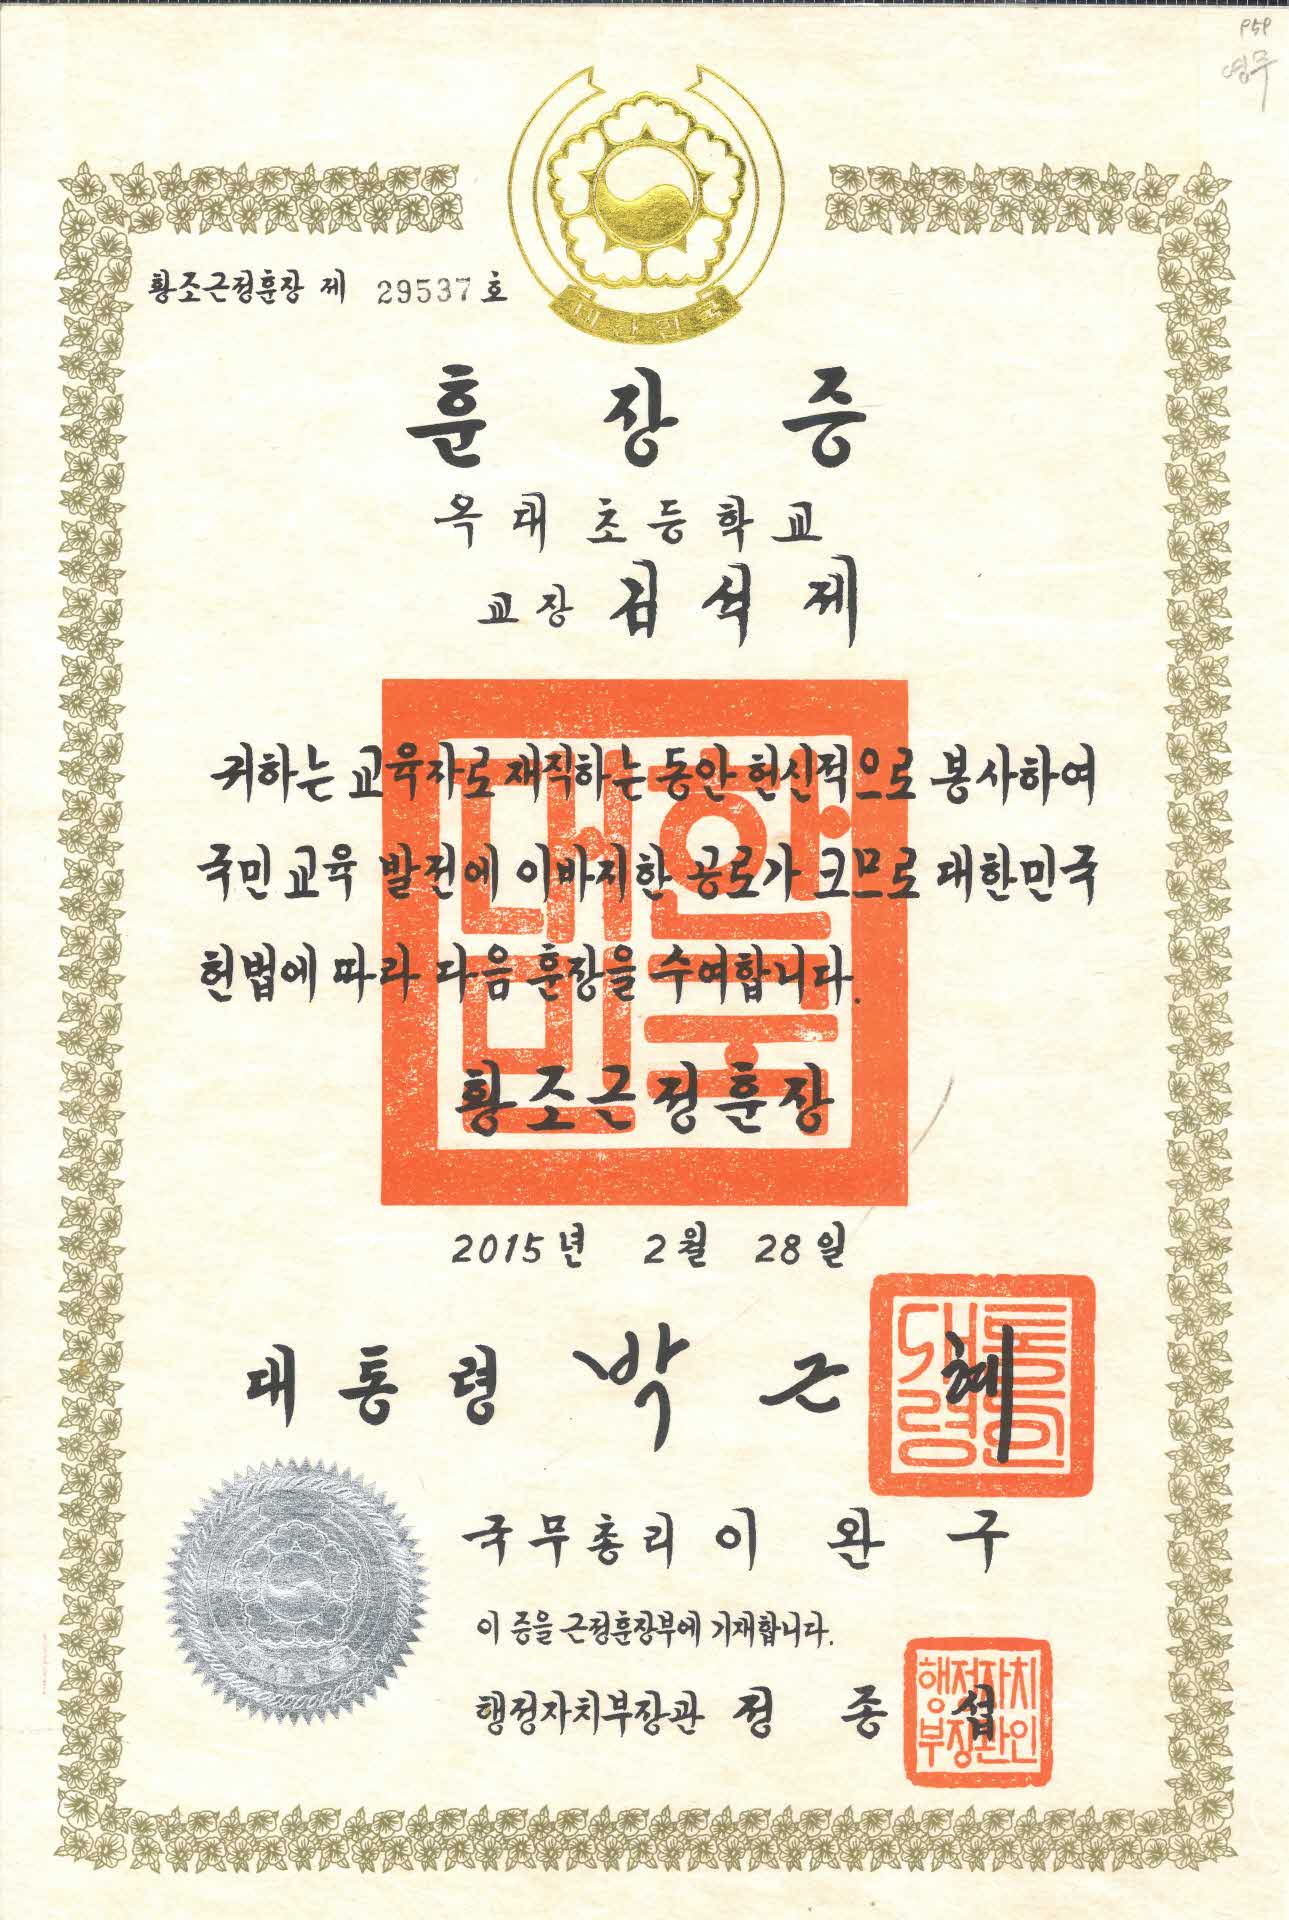 황조근정훈장 제 29537 호
대한민국
훈장증
옥대초등학교
교장 김석제
귀하는 교육자로 재직하는 동안 헌신적으로 봉사하여
국민 교육 발전에 이바지한 공로가 크므로 대한민국
헌법에 따라 다음 훈장을 수여합니다.
대한
민국
황조근정훈장
2015년 2월 28일
대통령 박근혜
대통
령인
국무총리 이완구
이 증을 근정훈장부에 기재합니다.
행정자치부장관 정종섭
행정자치
부장관인